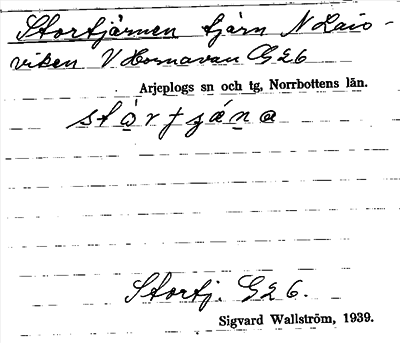 Stortjärnen tjärn N Laio-
viken V Hornavan G26
Arjeplogs sn och tg, Norrbottens län.
Stortj. G26.
Sigvard Wallström, 1939.